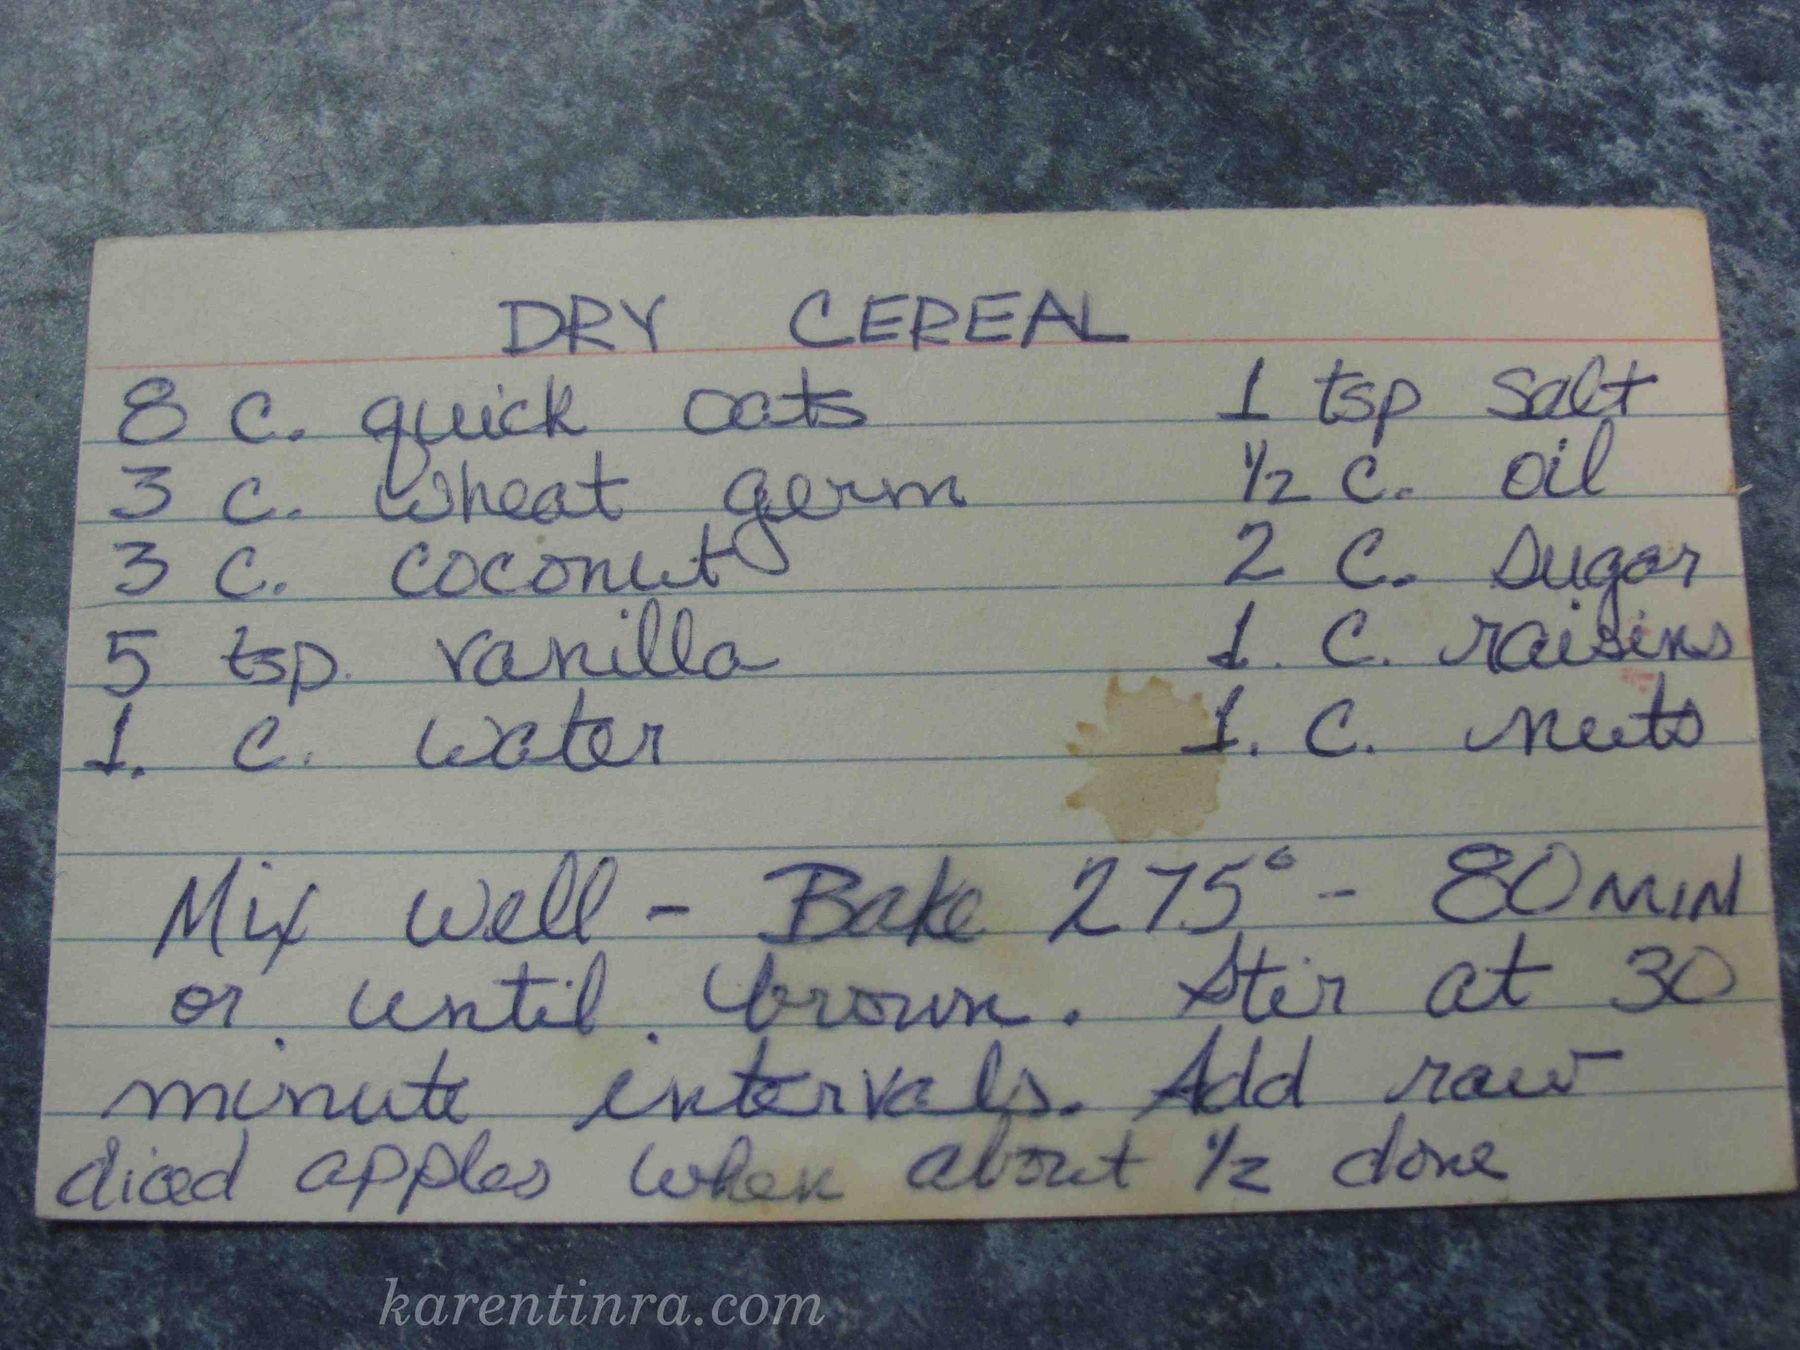 DRY CEREAL
8 c. quick oats 1 tsp salt
3 c. wheat germ 1/2 c. oil
3 c. coconut 2 c. sugar
5 tsp. vanilla 1. c. raisins
1. c. water 1. c. nuts
Mix well - Bake 275° - 80 MIN
or until brown. Stir at 30
minute intervals. Add raw
diced apples when about 1/2 done
karentinra.com